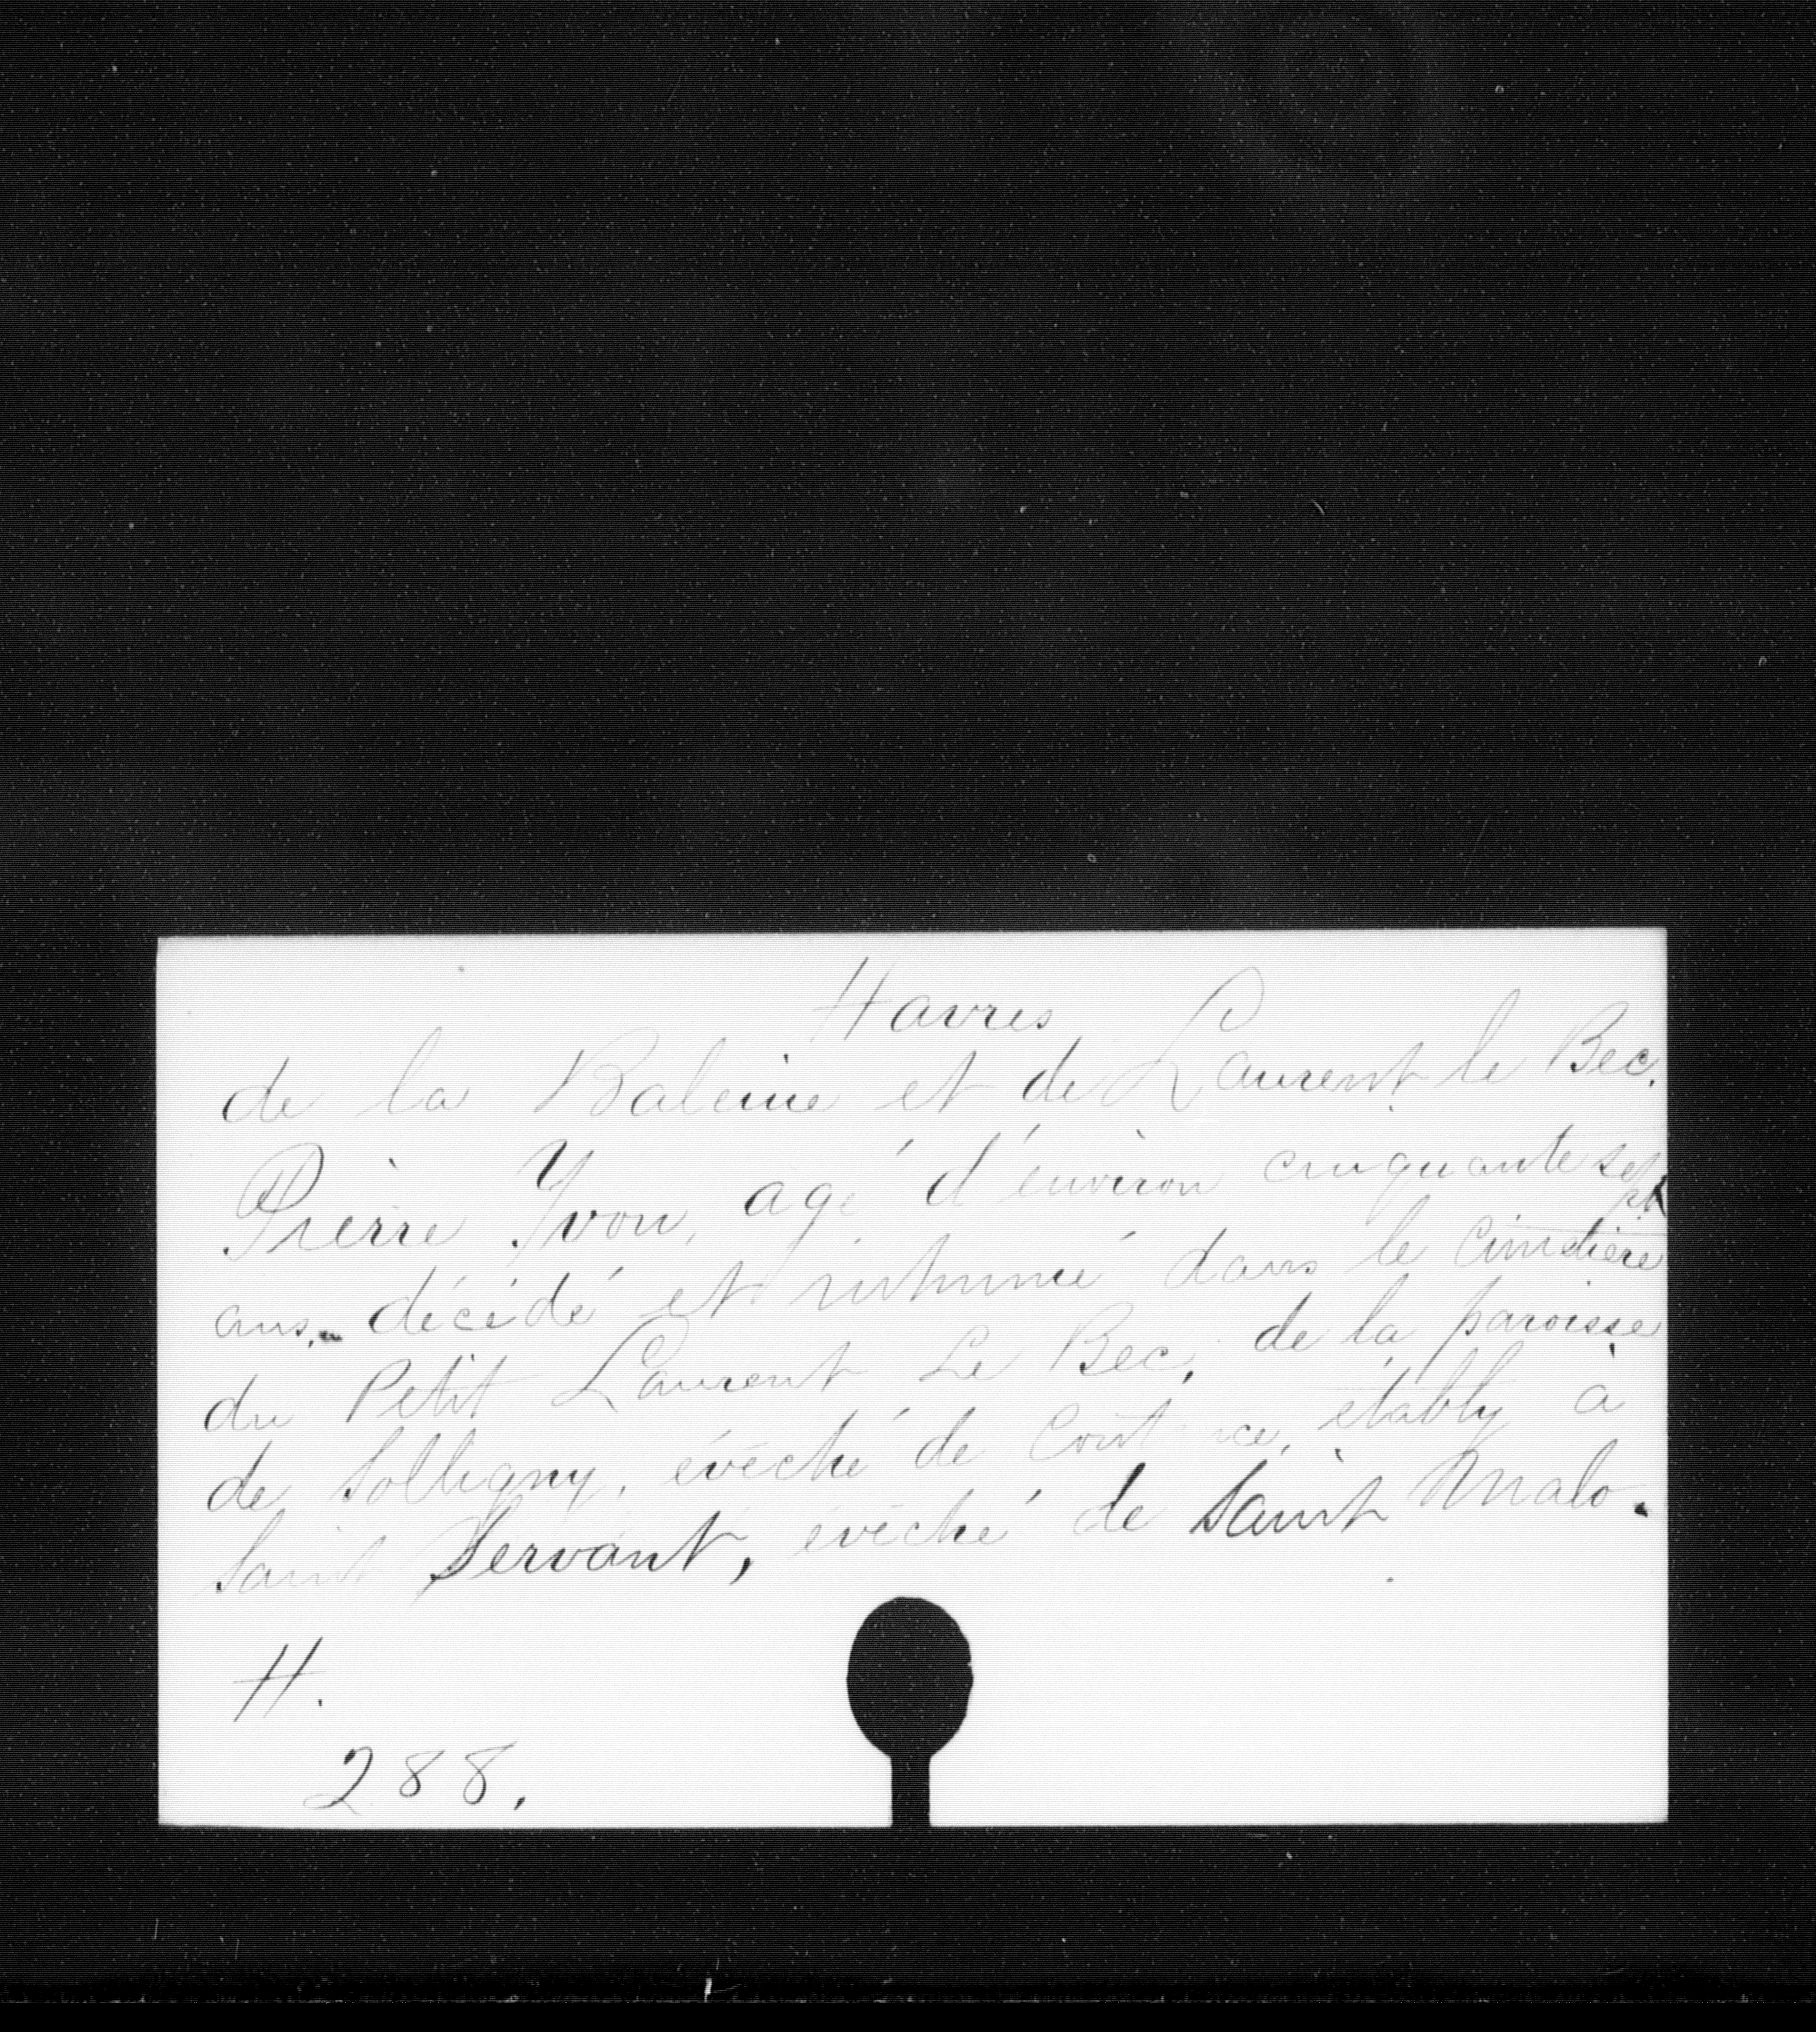 Havres
de la Baleine et de Laurent le Bec.
Pierre Yvon, agé d'environ cinquante sept
ans, décédé et inhumé dans le Cimetière
du Petit Laurent Le Bec, de la paroisse
de Solligny, évêché de Coutance, établly à
Saint Servant, évêché de Saint Malo.
H.
288.